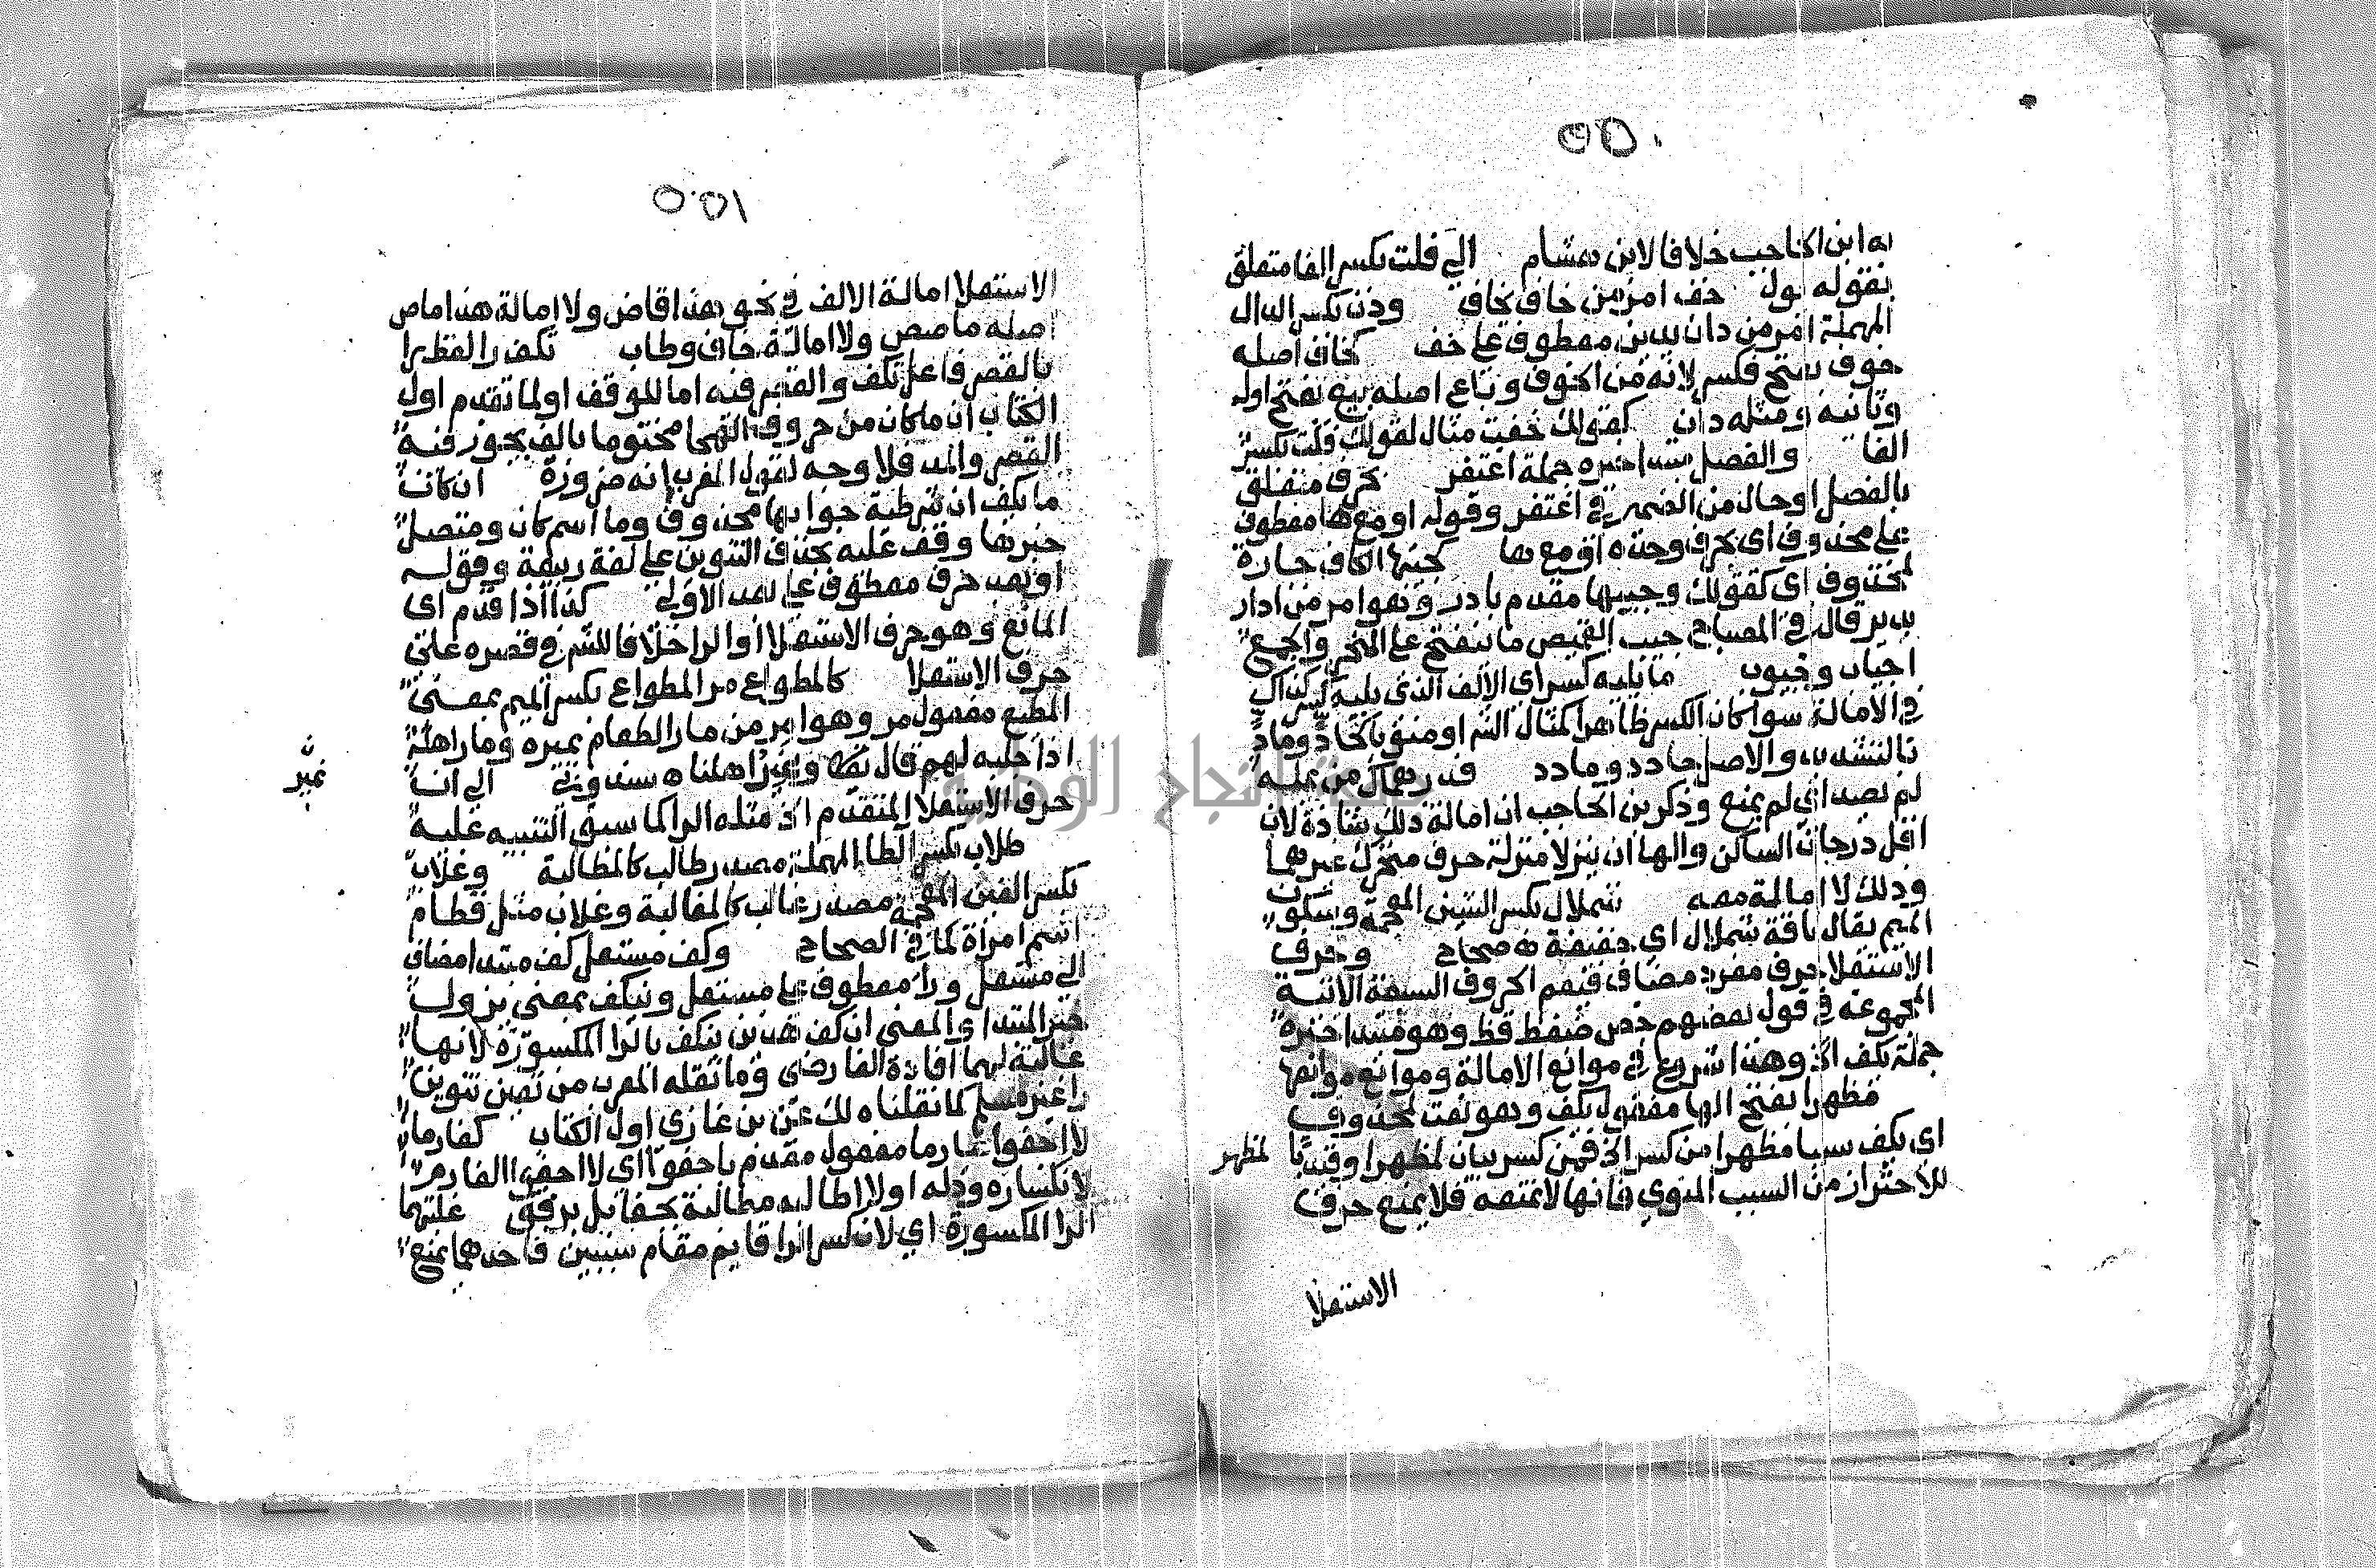 ٥٥٠
به ابن الحاجب خلافا لابن هشام الي فلت بكسر الفا متعلق
بقوله يول خف امر من خاف يخاف ودن بكسر الدال
المهملة امر من دان يدين معطوف علي خف كخاف اصله
خوف بفتح فكسر لانه من الخوف وباع اصله بيع بفتح اوله
وثانيه ومثله دان كقولك خفت مثال لقولك فلت بكسر
الفا والفصل مبتدا خبره جملة اغتفر بحرف متعلق
بالفصل او حال من الضمير في اغتفر وقوله او مع ها معطوف
علي محذوف اي بحرف وحده او مع ها كجيبها الكاف جارة
لمحذوف اي كقولك وجيبها مقدم بادر وهو امر من ادار
يدير قال في المصباح جيب القميص ما ينفتح علي النحر والجمع
اجياب وجيوب ما يليه كسر اي الالف الذي يليه كسر كذلك
في الامالة سوا كان الكسر ظاهرا كمثال الش او منويا كحاد وماد
بالتشديد والاصل حادد ومادد فدرهماك من يمله
لم يصد اي لم يمنع وذكر بن الحاجب ان امالة ذلك شاذة لان
اقل درجات الساكن والها ان ينزلا منزلة حرف متحرك غيرهما
وذلك لا امالة معه شملال بكسر الشين المعجمة وسكون
الميم يقال ناقة شملال اي خفيفة ه صحاح وحرف
الاستعلا حرف مفرد مضاف فيعم الحروف السبعة الاتية
المجموعة في قول بعضهم خص ضغط قظ وهو مبتدا خبره
جملة يكف الخ وهذا شروع في موانع الامالة وموانع موانعها
مظهرا بفتح الها مفعول يكف وهو نعت لمحذوف
اي يكف سببا مظهرا من كسر الخ فمن كسر بيان لمظهرا وقيد با لمظهر
للاحتراز من السبب المنوي فانها لا تمنعه فلا يمنع حرف
الاستعلا
٥٥١
الاستعلا امالة الالف في نحو هذا قاض ولا امالة هذا ماص
اصله ماصص ولا امالة خاف وطاب تكف را لفظ را
بالقصر فاعل تكف والقصر فيه اما للوقف او لما تقدم اول
الكتاب ان ما كان من حروف الهجا مختوما بالف يجوز فيه
القصر والمد فلا وجه لقول المعرب انه ضرورة ان كان
ما يكف ان شرطية جوابها محذوف وما اسم كان ومتصل
خبرها وقف عليه بحذف التنوين علي لغة ربيعة وقوله
او بعد حرف معطوف علي بعد الاولي كذا اذا قدم اي
المانع وهو حرف الاستعلا او الرا خلافا للش في قصره علي
حرف الاستعلا كالمطواع مر المطواع بكسر الميم بمعني
المطيع مفعول مر وهو امر من مار الطعام يميره ومار اهله
اذا جلبه لهم قال تعالي ونمير اهلنا ه سندوبي الي ان
نمير
حرف الاستعلا المتقدم الخ مثله الرا كما سبق التنبيه عليه
طلاب بكسر الطا المهملة مصدر طالب كالمطالبة وغلاب
بكسر الغين المعجمة مصدر غالب كالمغالبة وغلاب مثل قطام
اسم امراة كما في الصحاح وكف مستعل كف مبتدا مضاف
الي مستعل ورا معطوف علي مستعل وينكف بمعني يزول
خبر المبتدا والمعني ان كف هذين ينكف بالرا المكسورة لانها
غالبة لهما افاده الفارضي وما نقله المعرب من تعين تنوين
را غير مسلم لما نقلناه لك عن بن غازي اول الكتاب كغارما
لا اجفو اغارما مفعول مقدم باجفو اي لا اجفو الغارم
لانكساره وذله اولا اطالبه مطالبة بجفا بل برفق غلبتهما
الرا المكسورة اي لان كسر الرا قايم مقام سببين فاحدهما يمنع